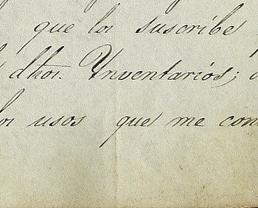 que los suscribe
dhos. Ynventarios;
los usos que me con